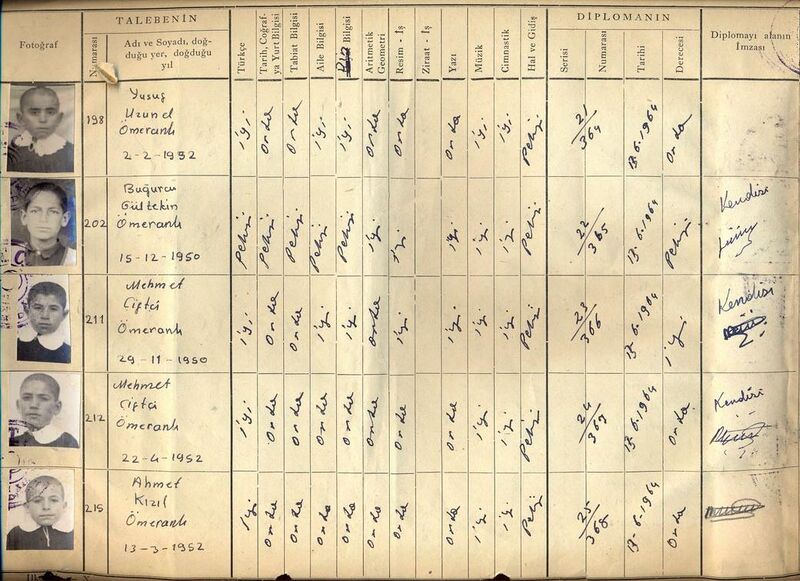 Fotoğraf
TALEBENİN
Numarası
Adı ve Soyadı, doğ-
duğu yer, doğduğu
yıl
Türkçe
Tarih, Coğraf-
ya Yurt Bilgisi
Tabiat Bilgisi
Aile Bilgisi
Bilgisi
Aritmetik
Geometri
Resim - İş
Ziraat - İş
Yazı
Müzik
Cimnastik
Hal ve Gidiş
DİPLOMANIN
Serisi
Numarası
Tarihi
Derecesi
Diplomayı alanın
İmzası
198
Yusuf
Uzunel
Ömeranlı
2-2-1952
iyi
orta
orta
iyi
iyi
orta
orta
orta
iyi
iyi
Pekiyi
21/364
13-6-1964
orta
202
Gültekin
Ömeranlı
15-12-1950
Pekiyi
Pekiyi
Pekiyi
Pekiyi
Pekiyi
iyi
iyi
iyi
iyi
iyi
Pekiyi
22/365
13-6-1964
Pekiyi
Kendisi
211
Mehmet
Çiftçi
Ömeranlı
29-11-1950
iyi
orta
orta
iyi
iyi
orta
iyi
iyi
iyi
iyi
Pekiyi
23/366
13-6-1964
iyi
Kendisi
212
Mehmet
Çiftçi
Ömeranlı
22-4-1952
iyi
orta
orta
orta
orta
orta
orta
orta
iyi
iyi
Pekiyi
24/367
13-6-1964
orta
Kendisi
215
Ahmet
Kızıl
Ömeranlı
13-3-1952
iyi
orta
orta
orta
orta
orta
orta
orta
iyi
iyi
Pekiyi
25/368
13-6-1964
orta